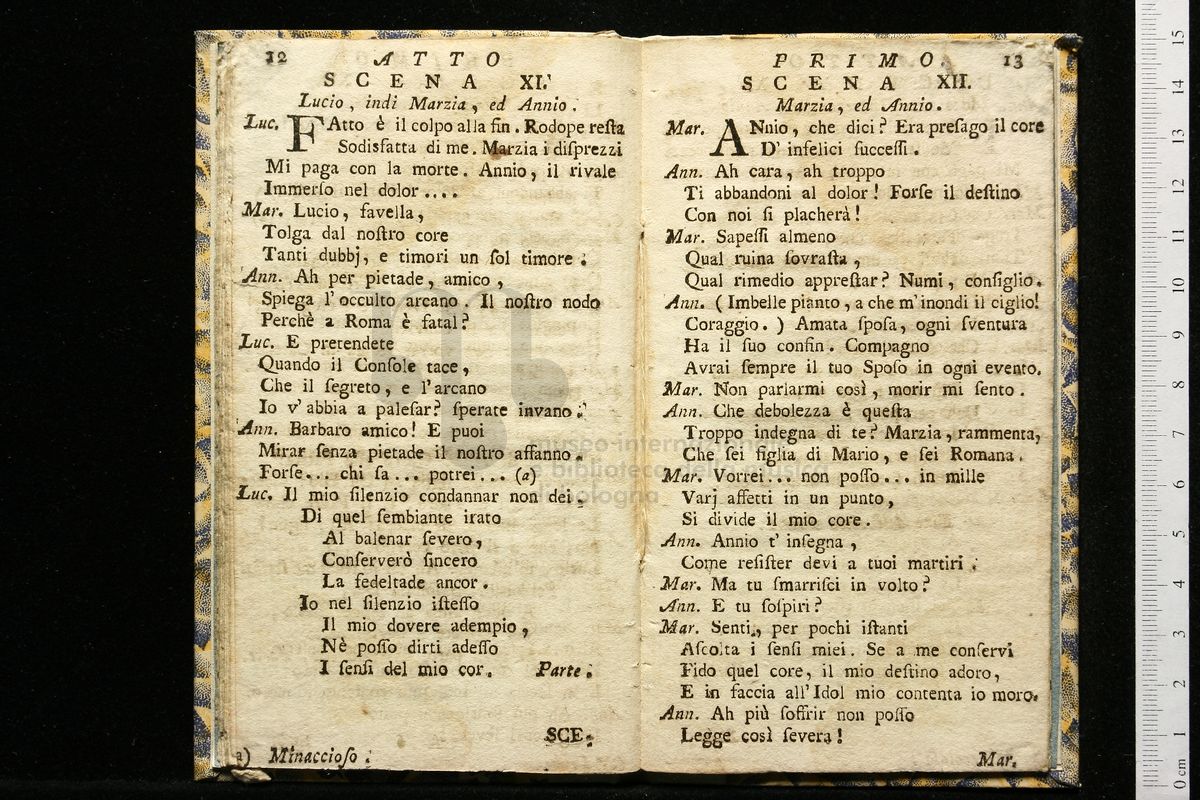 12 ATTO
SCENA XI.
Lucio, indi Marzia, ed Annio.
Luc. FAtto è il colpo alla fin. Rodope reſta
Sodisfatta di me. Marzia i diſprezzi
Mi paga con la morte. Annio, il rivale
Immerſo nel dolor ....
Mar. Lucio, favella,
Tolga dal noſtro core
Tanti dubbj, e timori un ſol timore.
Ann. Ah per pietade, amico,
Spiega l'occulto arcano. Il noſtro nodo
Perchè a Roma è fatal?
Luc. E pretendete
Quando il Conſole tace,
Che il ſegreto, e l'arcano
Io v'abbia a paleſar? ſperate invano.
Ann. Barbaro amico! E puoi
Mirar ſenza pietade il noſtro affanno.
Forſe... chi ſa... potrei... (a)
Luc. Il mio ſilenzio condannar non dei.
Di quel ſembiante irato
Al balenar ſevero,
Conſerverò ſincero
La fedeltade ancor.
Io nel ſilenzio iſteſſo
Il mio dovere adempio,
Nè poſſo dirti adeſſo
I ſenſi del mio cor. Parte.
SCE-
a) Minaccioſo.
PRIMO. 13
SCENA XII.
Marzia, ed Annio.
Mar. ANnio, che dici? Era preſago il core
D' infelici ſucceſſi.
Ann. Ah cara, ah troppo
Ti abbandoni al dolor! Forſe il deſtino
Con noi ſi placherà!
Mar. Sapeſſi almeno
Qual ruina ſovraſta,
Qual rimedio appreſtar? Numi, conſiglio.
Ann. (Imbelle pianto, a che m'inondi il ciglio!
Coraggio.) Amata ſpoſa, ogni ſventura
Ha il ſuo confin. Compagno
Avrai ſempre il tuo Spoſo in ogni evento.
Mar. Non parlarmi così, morir mi ſento.
Ann. Che debolezza è queſta
Troppo indegna di te? Marzia, rammenta,
Che ſei figlia di Mario, e ſei Romana.
Mar. Vorrei... non poſſo... in mille
Varj affetti in un punto,
Si divide il mio core.
Ann. Annio t' inſegna,
Come reſiſter devi a tuoi martiri.
Mar. Ma tu ſmarriſci in volto?
Ann. E tu ſoſpiri?
Mar. Senti, per pochi iſtanti
Aſcolta i ſenſi miei. Se a me conſervi
Fido quel core, il mio deſtino adoro,
E in faccia all'Idol mio contenta io moro.
Ann. Ah più ſoffrir non poſſo
Legge così ſevera!
Mar.
museo internazionale
e biblioteca della musica
di bologna
15
14
13
12
11
10
9
8
7
6
5
4
3
2
1
0 cm